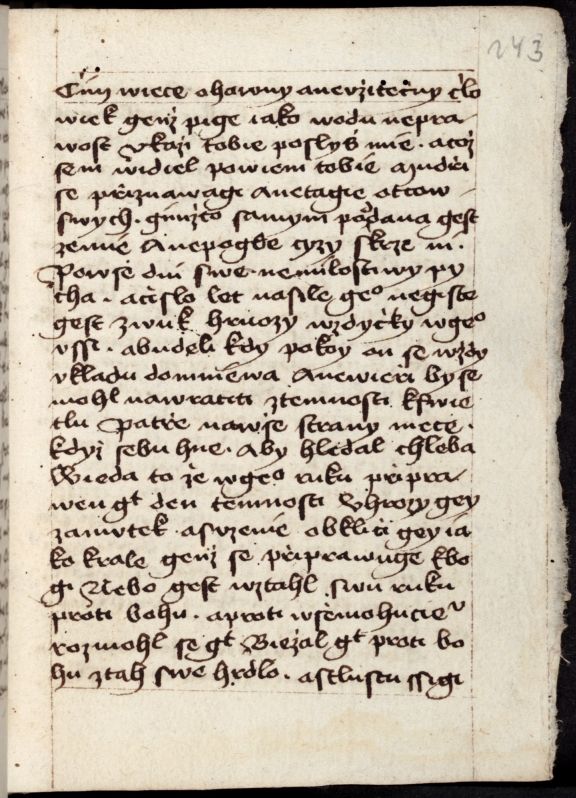 243
Cím wiece ohawny aneuzitečny člo
wiek genž pige iako wodu nepra
wost Ukaži tobie poslyš mie · a což
sem widiel powiem tobie a mudři
se přiznawagi a netagie otcow
swych · gimžto samym poddana gest
zemie A nepogde cyzy skrze ni ·
Po wše dni swe nemilostiwy py
cha · a čislo let nasile geᵒ negiste
gest zwuk hruozy wzdyčky w geᵒ
ussi · a budeli kdy pokoy on se wždy
ukladu domniewa A newieři by se
mohl nawratiti z temnosti k swie
tlu Patře na wse strany mece ·
když se buhne · aby hledal chleba
Wieda to že w geᵒ ruku připra
wen gᵗ den temnosti Uhrozy gey
zamutek a sużenie obkliči gey ia
ko krale genž se připrawuge k bo
gi Nebo gest wztahl swu ruku
proti bohu · a proti wšemohucieᵘ
rozmohl se gᵗ Biežal gᵗ proti bo
hu ztah swe hrdlo · a stlustu ssigi